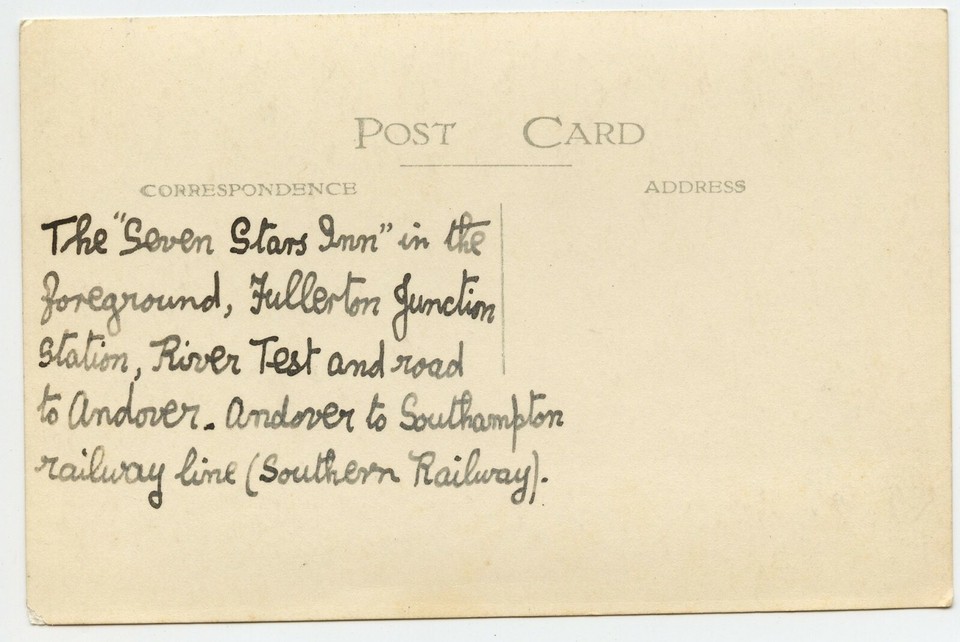 POST CARD
CORRESPONDENCE
ADDRESS
The "Seven Stars Inn" in the
foreground, Fullerton Junction
Station, River Test and road
to Andover. Andover to Southampton
railway line (Southern Railway).